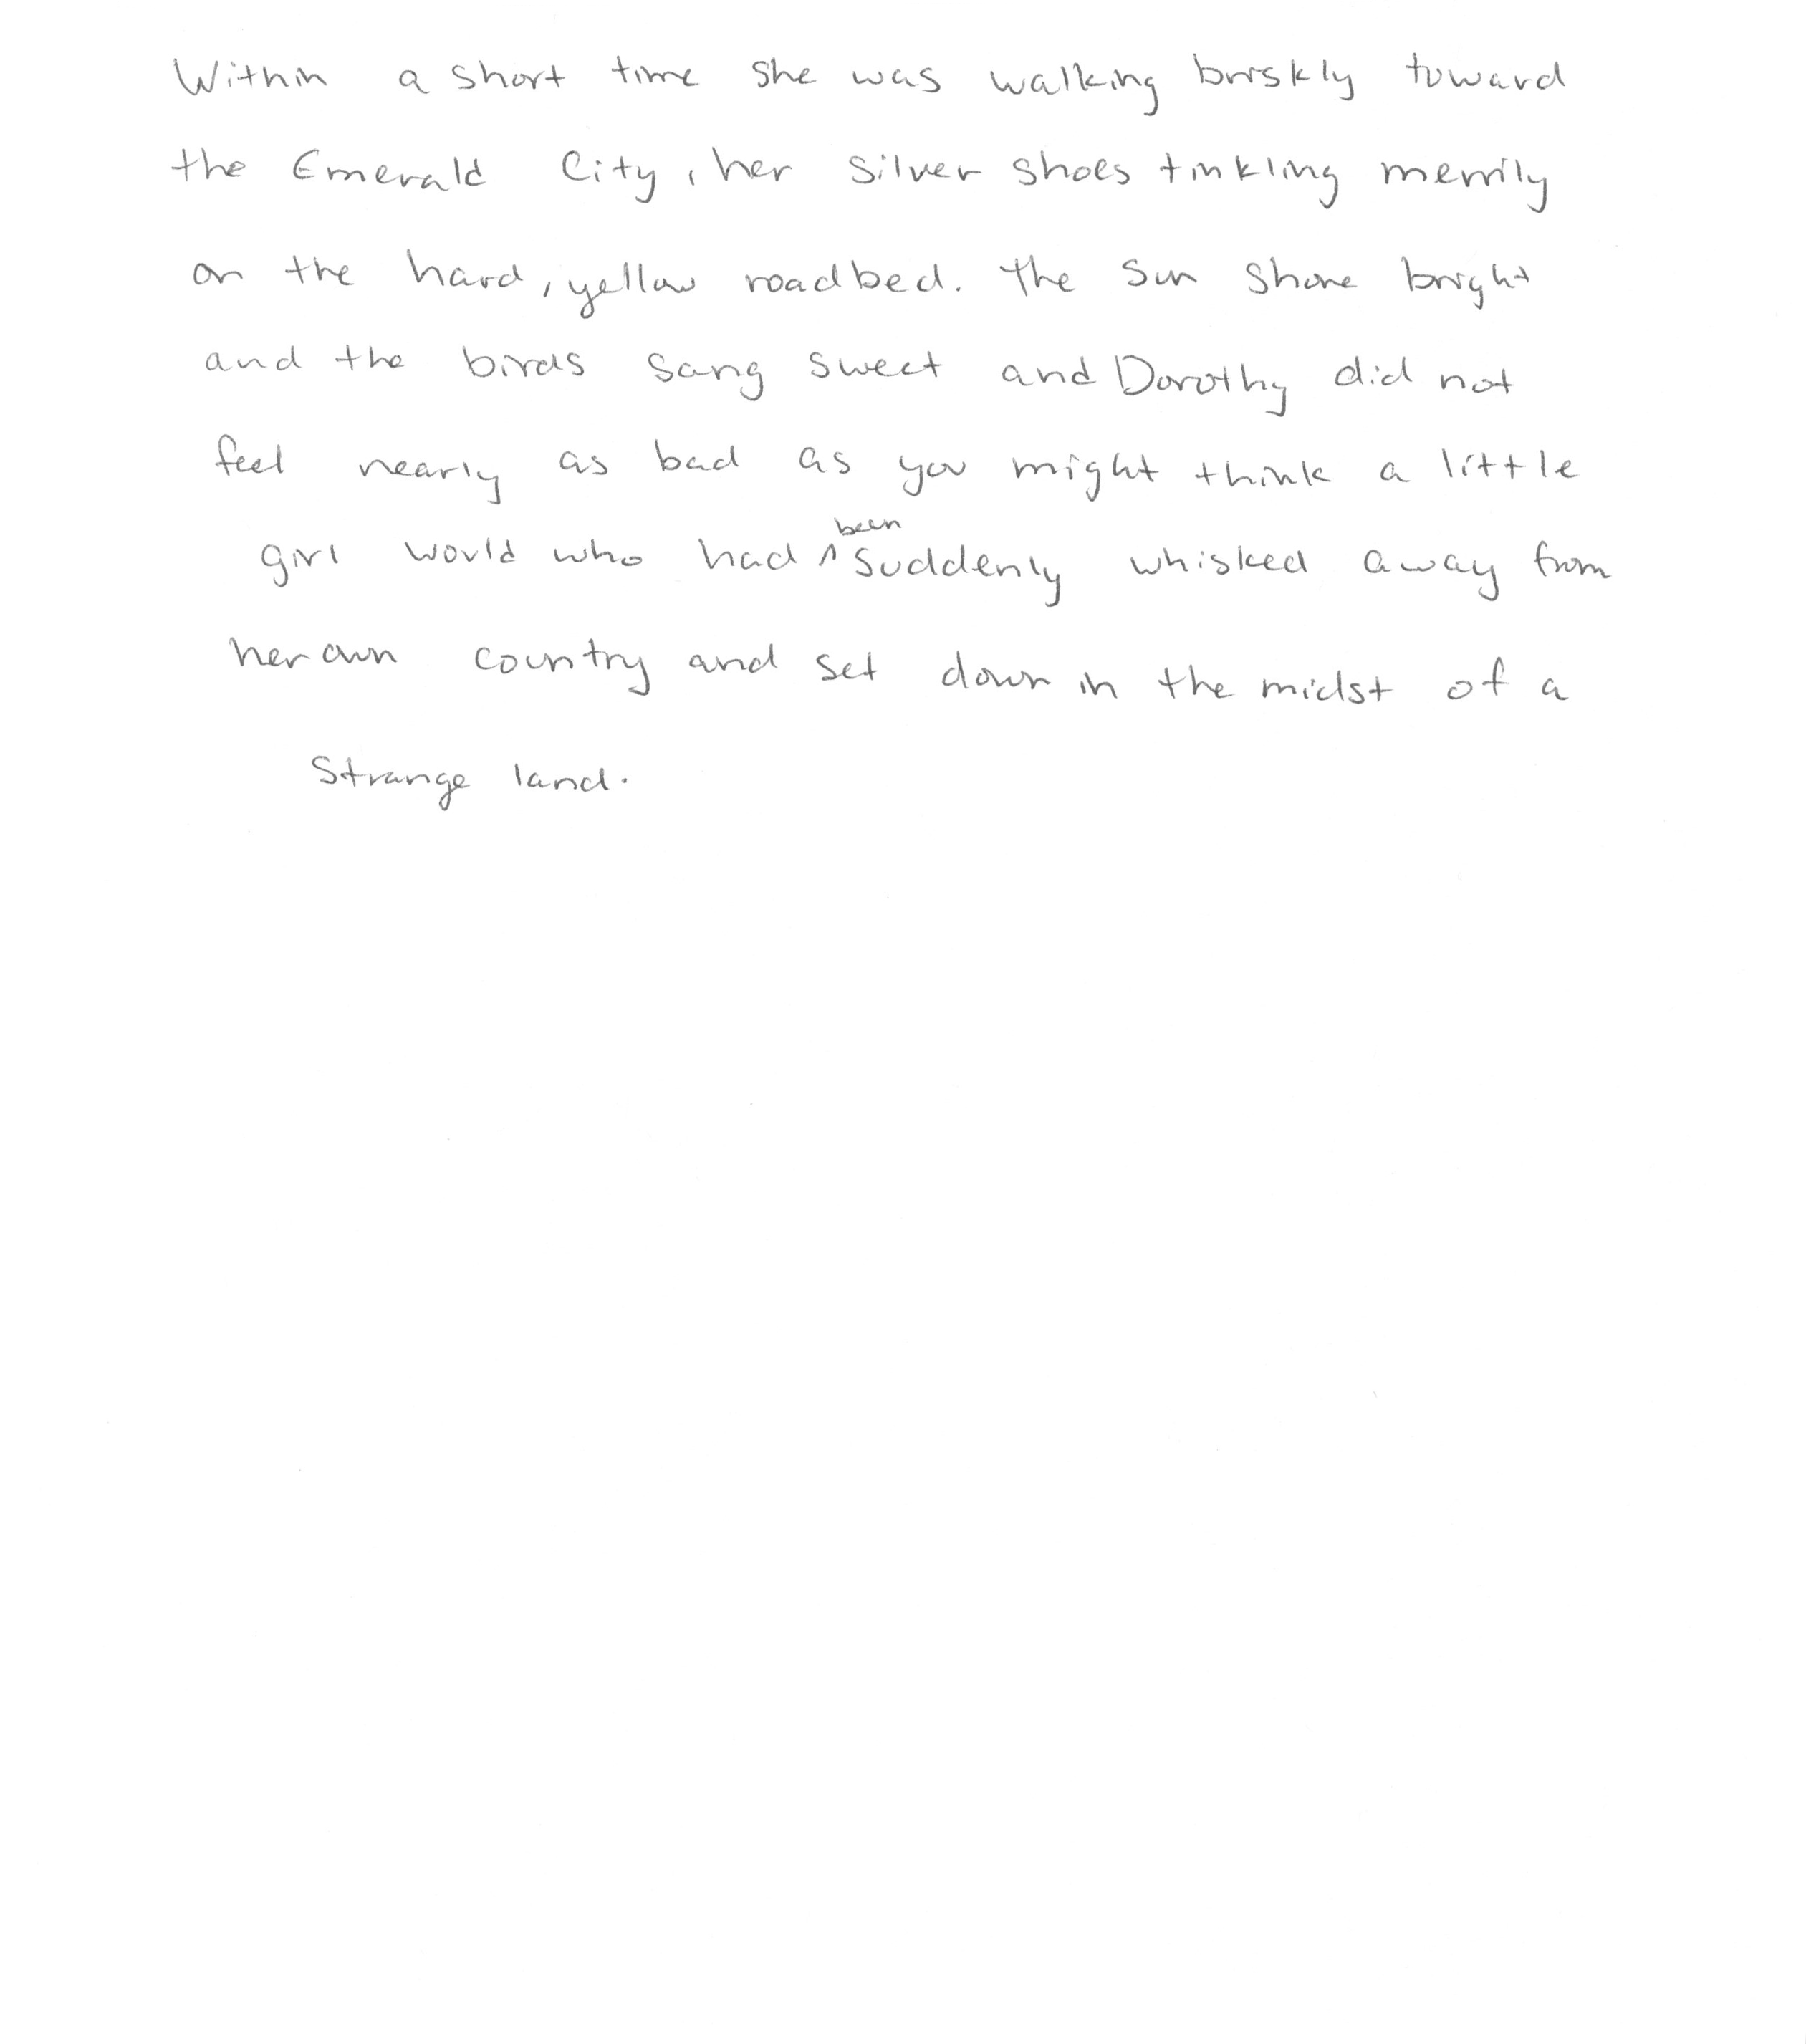 Within a short time she was walking briskly toward
the Emerald City, her silver shoes tinkling merrily
on the hard, yellow roadbed. The sun shone bright
and the birds sang sweet and Dorothy did not
feel nearly as bad as you might think a little
girl would who had ^been suddenly whisked away from
her own country and set down in the midst of a
strange land.